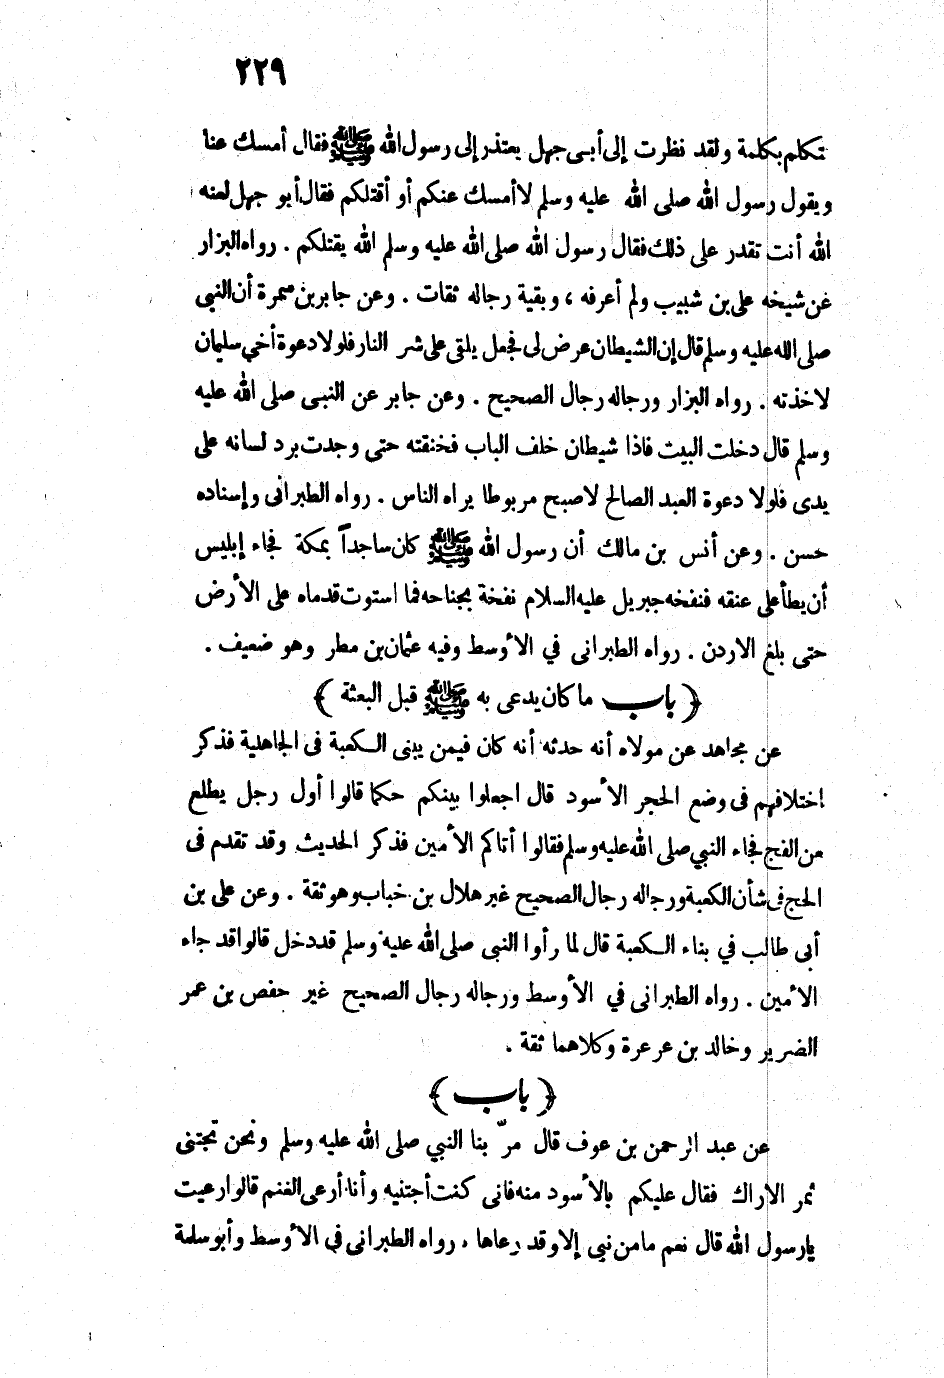 ٢٢٩
تكلم بكلمة ولقد نظرت إلى أبى جهل يعتذر إلى رسول الله ﷺ فقال أمسك عنا
ويقول رسول الله صلى الله عليه وسلم لا أمسك عنكم أو أقتلكم فقال أبو جهل لعنه
الله أنت تقدر على ذلك فقال رسول الله صلى الله عليه وسلم الله يقتلكم . رواه البزار
عن شيخه على بن شبيب ولم أعرفه ، وبقية رجاله ثقات . وعن جابر بن سمرة أن النبى
صلى الله عليه وسلم قال إن الشيطان عرض لى فجعل يلقى على شر النار فلولا دعوة أخي سليمان
لاخذته . رواه البزار ورجاله رجال الصحيح . وعن جابر عن النبى صلى الله عليه
وسلم قال دخلت البيت فاذا شيطان خلف الباب فخنقته حتى وجدت برد لسانه على
يدى فلولا دعوة العبد الصالح لاصبح مربوطا يراه الناس . رواه الطبرانى وإسناده
حسن . وعن أنس بن مالك أن رسول الله ﷺ كان ساجداً بمكة فجاء إبليس
أن يطأ على عنقه فنفخه جبريل عليه السلام نفخة بجناحه فما استوت قدماه على الأرض
حتى بلغ الاردن . رواه الطبرانى في الأوسط وفيه عثمان بن مطر وهو ضعيف .
﴿ باب ما كان يدعى به ﷺ قبل البعثة ﴾
عن مجاهد عن مولاه أنه حدثه أنه كان فيمن يبنى الكعبة فى الجاهلية فذكر
اختلافهم فى وضع الحجر الأسود قال اجعلوا بينكم حكما قالوا أول رجل يطلع
من الفج فجاء النبي صلى الله عليه وسلم فقالوا أتاكم الأمين فذكر الحديث وقد تقدم فى
الحج فى شأن الكعبة ورجاله رجال الصحيح غير هلال بن خباب وهو ثقة . وعن على بن
أبى طالب في بناء الكعبة قال لما رأوا النبى صلى الله عليه وسلم قد دخل قالوا قد جاء
الأمين . رواه الطبرانى في الأوسط ورجاله رجال الصحيح غير حفص بن عمر
الضرير وخالد بن عرعرة وكلاهما ثقة .
﴿ باب ﴾
عن عبد الرحمن بن عوف قال مرّ بنا النبي صلى الله عليه وسلم ونحن نجتنى
ثمر الاراك فقال عليكم بالأسود منه فانى كنت أجتنيه وأنا أرعى الغنم قالوا رعيت
يا رسول الله قال نعم ما من نبى إلا وقد رعاها . رواه الطبرانى فى الأوسط وأبو سلمة